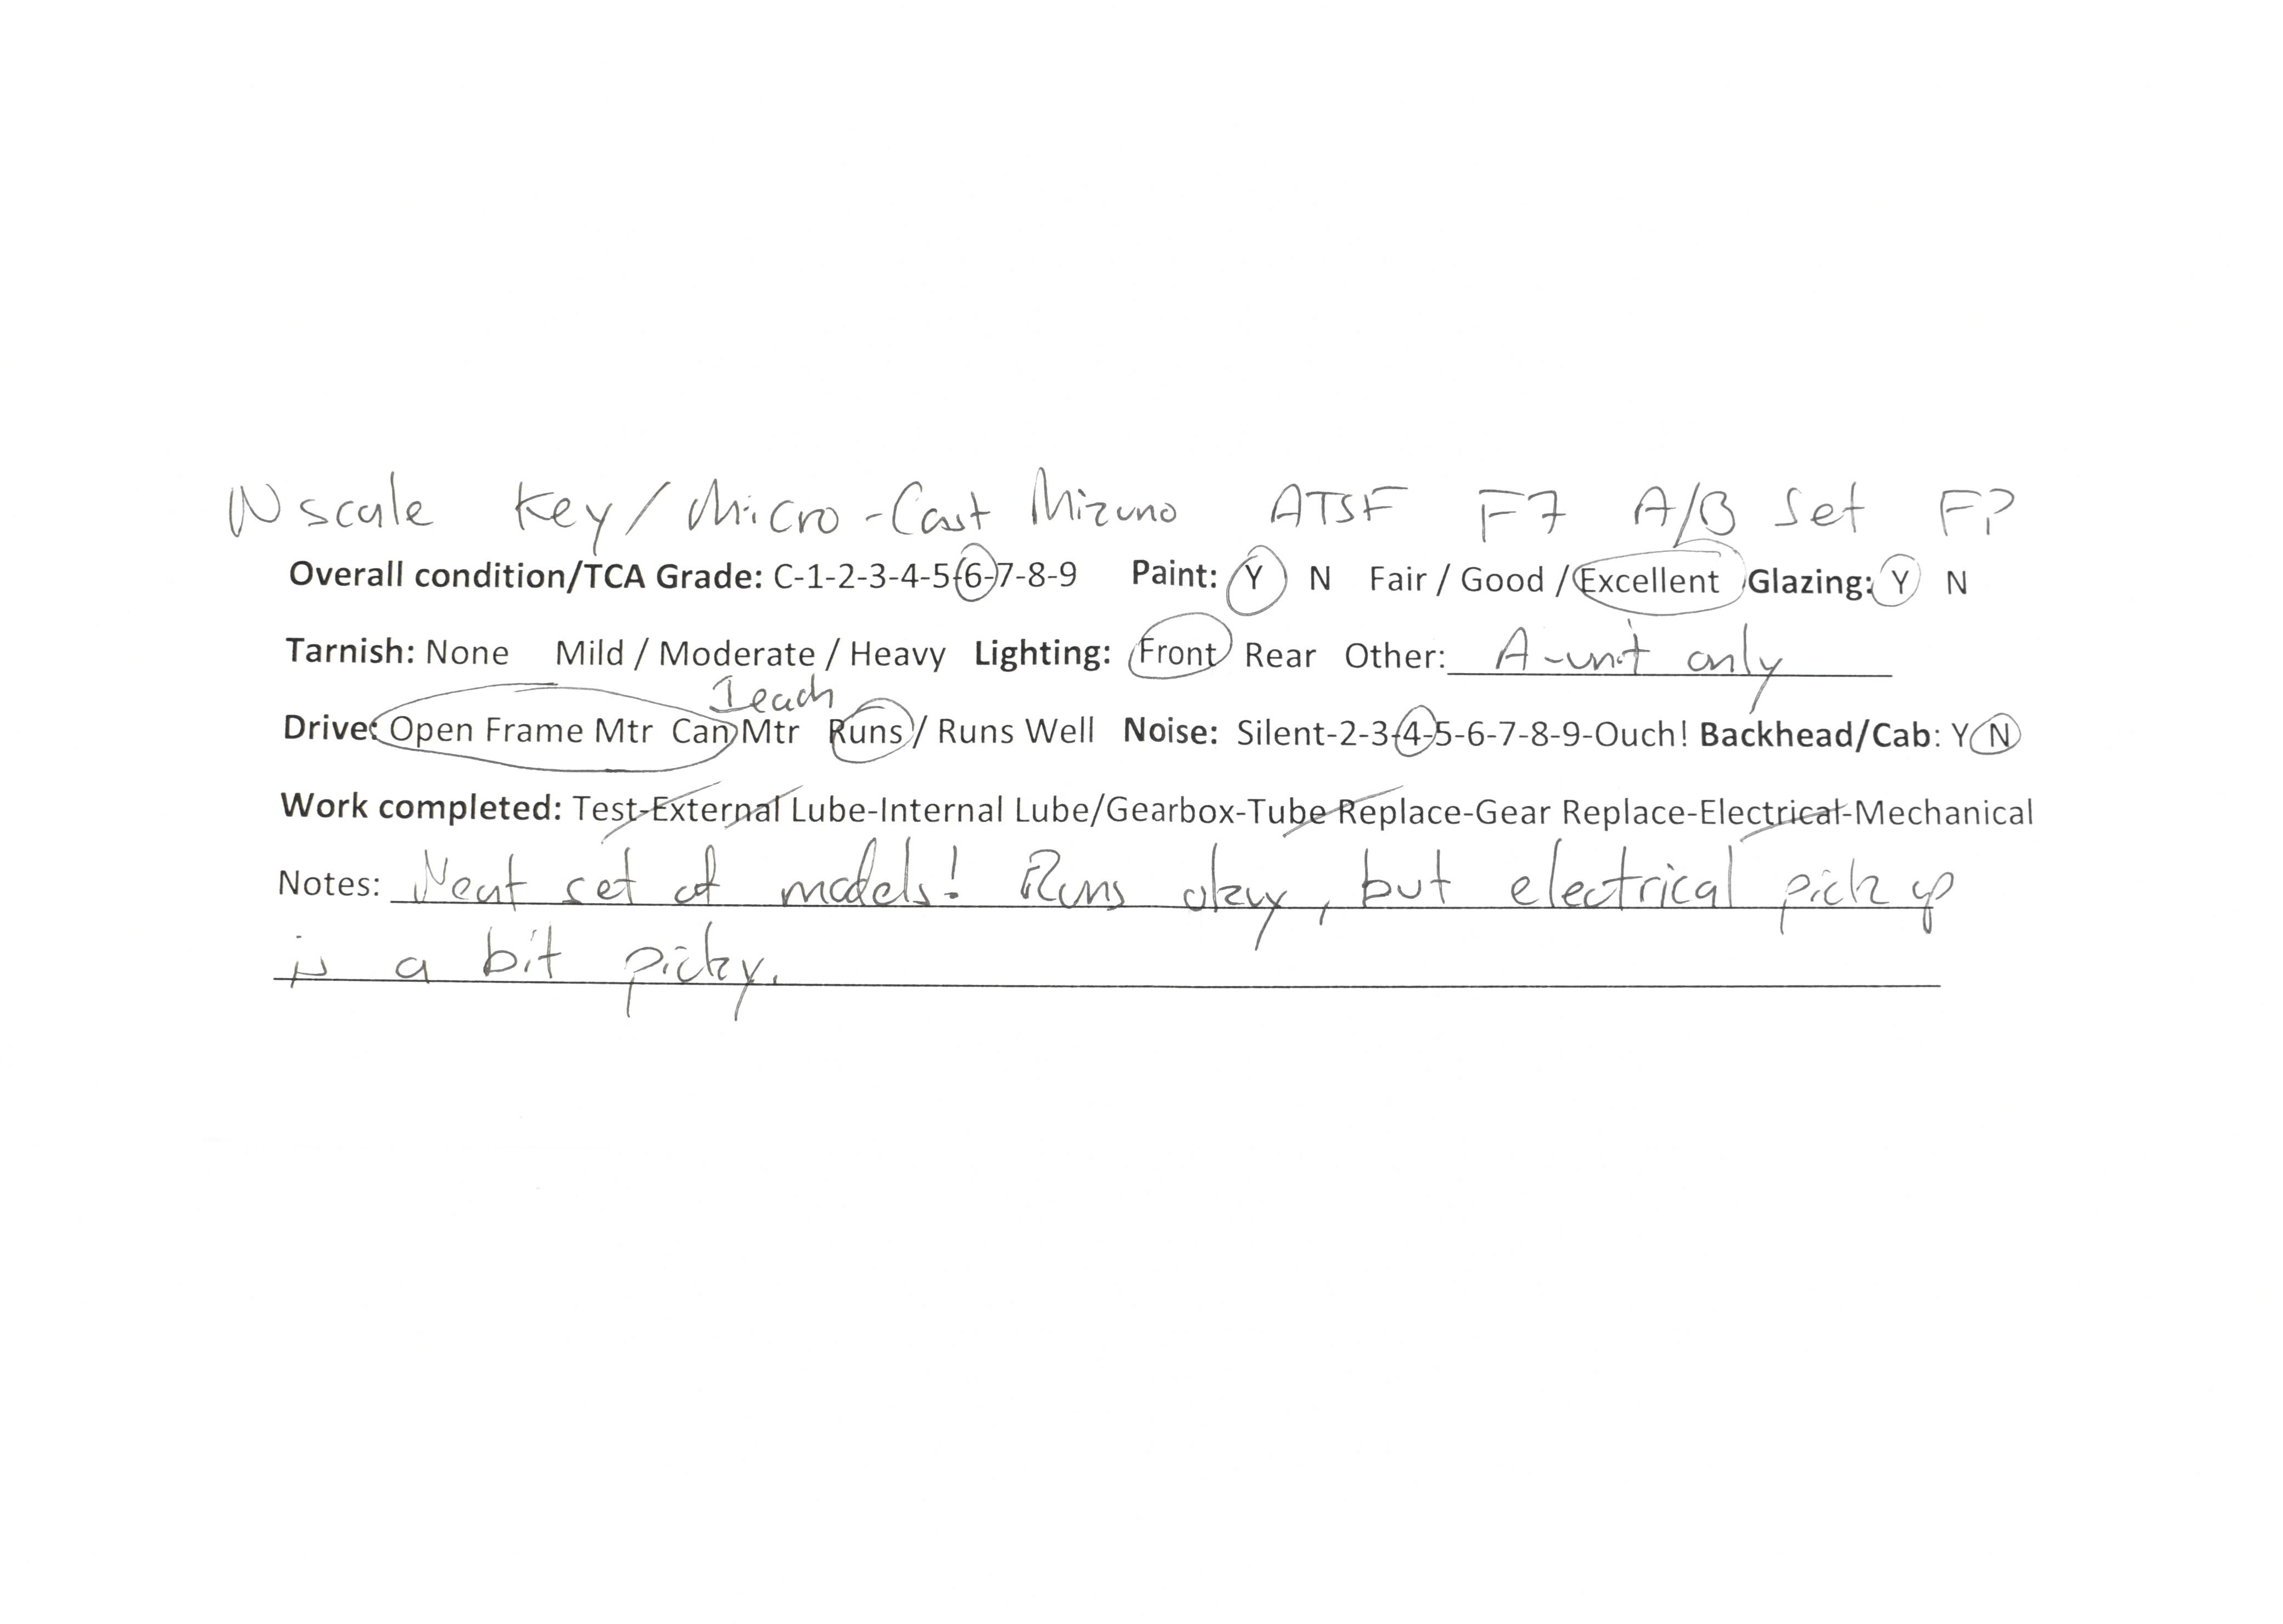 N scale Key/Micro-Cast Mizuno ATSF F7 A/B Set FP
Overall condition/TCA Grade: C-1-2-3-4-5-6-7-8-9 Paint: Y N Fair / Good / Excellent Glazing: Y N
Tarnish: None Mild / Moderate / Heavy Lighting: Front Rear Other: A-unit only
1 each
Drive: Open Frame Mtr Can Mtr Runs / Runs Well Noise: Silent-2-3-4-5-6-7-8-9-Ouch! Backhead/Cab: Y N
Work completed: Test-External Lube-Internal Lube/Gearbox-Tube Replace-Gear Replace-Electrical-Mechanical
Notes: Neat set of models! Runs okay, but electrical pick up
is a bit picky.